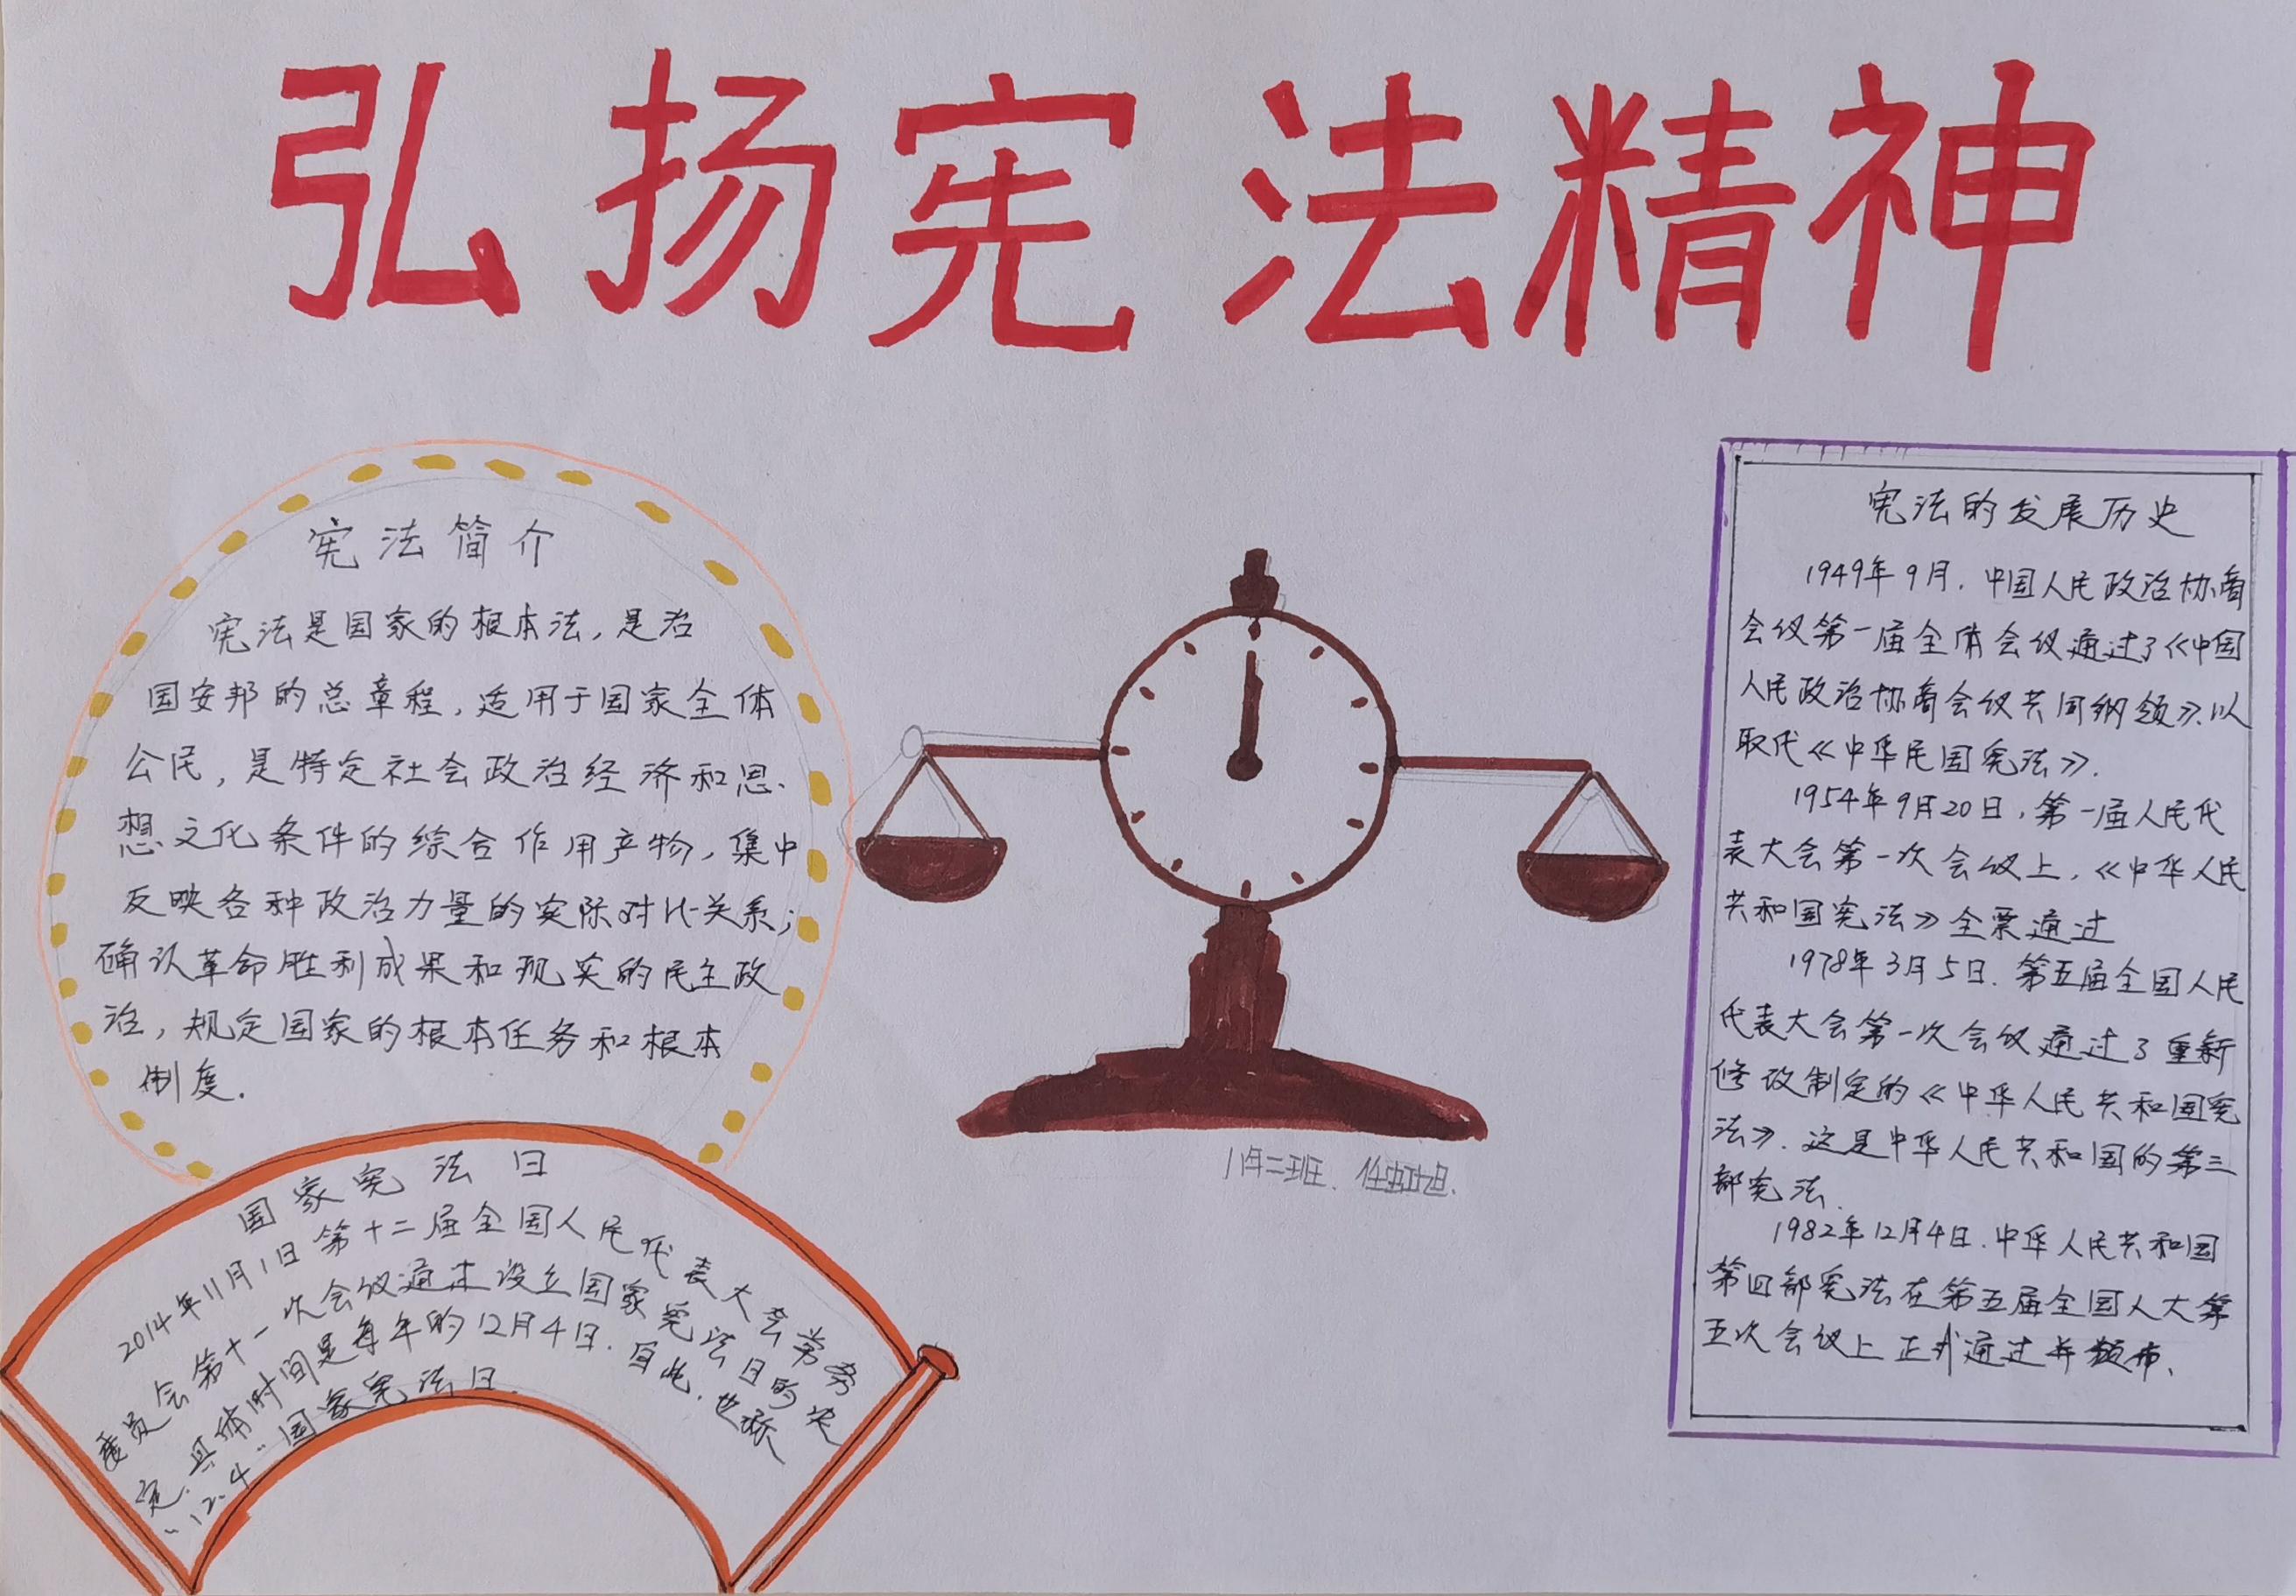 弘扬宪法精神
宪法简介
宪法是国家的根本法，是治
国安邦的总章程，适用于国家全体
公民，是特定社会政治经济和思
想文化条件的综合作用产物，集中
反映各种政治力量的实际对比关系；
确认革命胜利成果和现实的民主政
治，规定国家的根本任务和根本
制度.
国家宪法日
2014年11月1日第十二届全国人民代表大会常务
委员会第十一次会议通过设立国家宪法日的决
定.具体时间是每年的12月4日.自此.也称
"12.4"国家宪法日.
1年二班.
宪法的发展历史
1949年9月.中国人民政治协商
会议第一届全体会议通过了《中国
人民政治协商会议共同纲领》.以
取代《中华民国宪法》.
1954年9月20日，第一届人民代
表大会第一次会议上，《中华人民
共和国宪法》全票通过
1978年3月5日.第五届全国人民
代表大会第一次会议通过了重新
修改制定的《中华人民共和国宪
法》.这是中华人民共和国的第三
部宪法.
1982年12月4日.中华人民共和国
第四部宪法在第五届全国人大第
五次会议上正式通过并颁布.